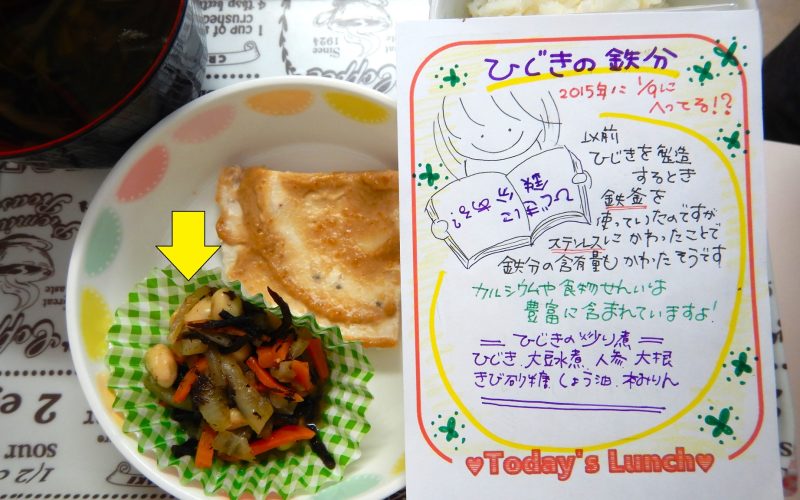 ひじきの鉄分
2015年に 1/9に
へってる!?
以前
ひじきを製造
するとき
鉄釜を
使っていたのですが
ステンレスにかわったことで
鉄分の含有量もかわたそうです
カルシウムや食物せんいは
豊富に含まれていますよ!
ひじきの炒り煮
ひじき、大豆水煮、人参、大根
きび砂糖、しょう油、本みりん
♥Today's Lunch♥
1 CUP of
crushed
Since
1924
Coffee
2 e
sour
1/2 c